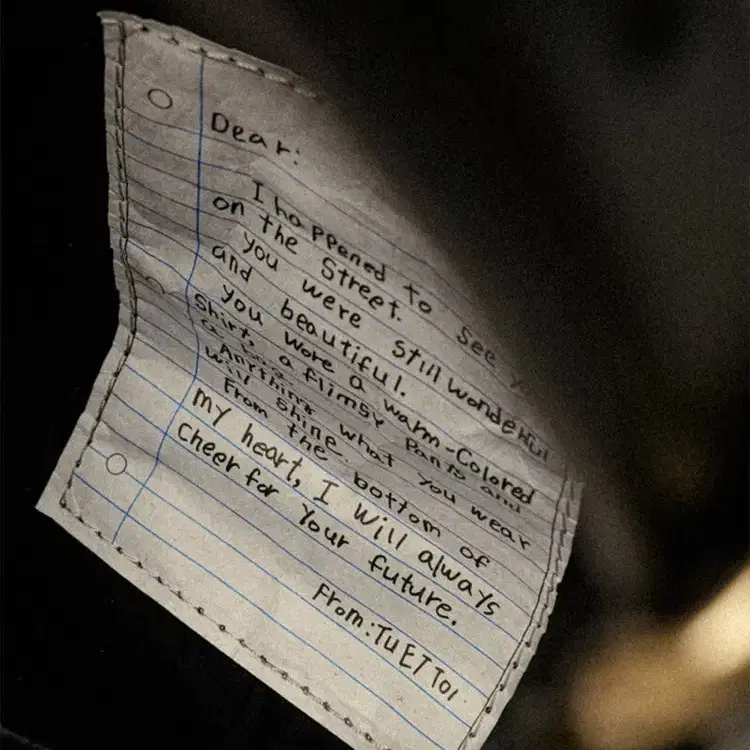 Dear:
I happened to see
on the Street.
you were still wondeful
and beautiful.
you wore a warm-Colored
Shirt, a flimsy Pants and
Anything what you wear
will shine.
From the bottom of
my heart, I will always
cheer for your future.
From:TUETTOI